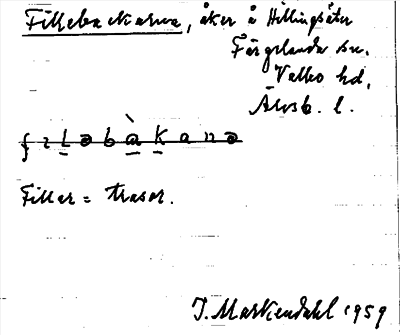 Fillebackarna, åker å Hillingsäter
Färgelanda sn.
Valbo hd.
Älvsb. l.
Fillar = trasor.
J. Markendahl 1959